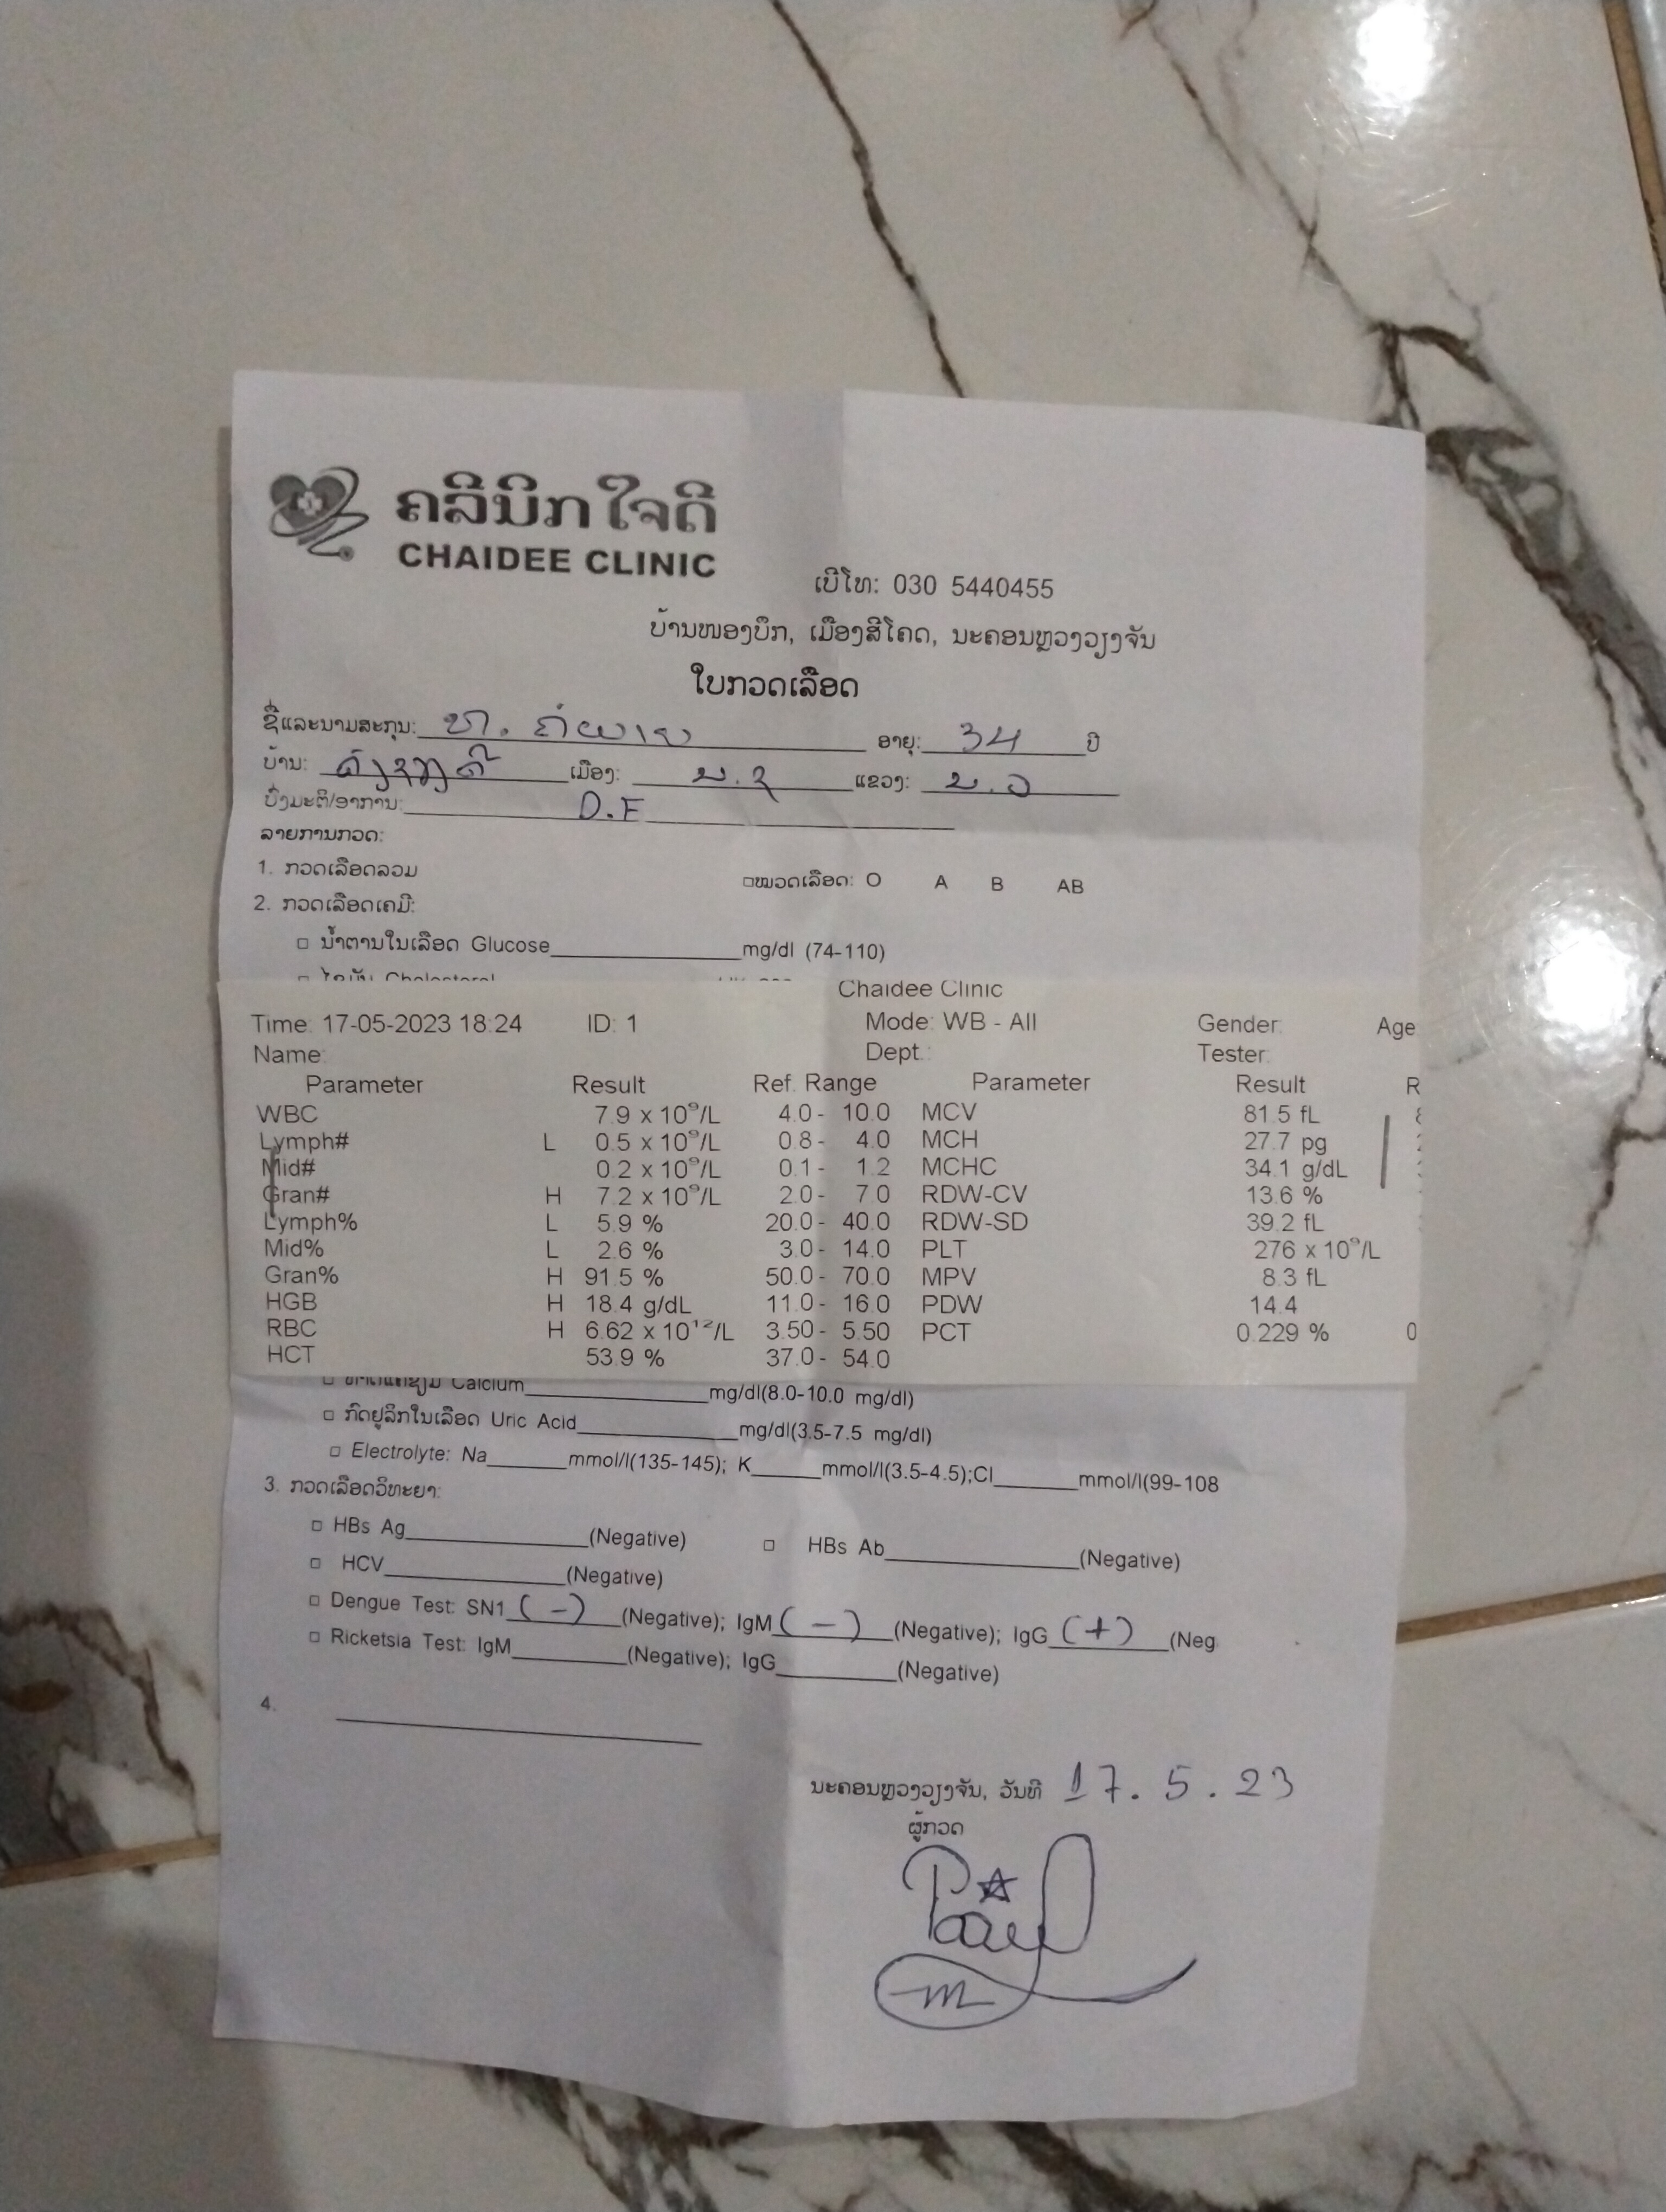 ຄລີນິກ ໃຈດີ
CHAIDEE CLINIC
ເບີໂທ: 030 5440455
ບ້ານໜອງບຶກ, ເມືອງສີໂຄດ, ນະຄອນຫຼວງວຽງຈັນ
ໃບກວດເລືອດ
ຊື່ແລະນາມສະກຸນ: ອາຍຸ: 34 ປີ
ບ້ານ: ເມືອງ: ແຂວງ:
ບົ່ງມະຕິ/ອາການ: D.F
ລາຍການກວດ:
1. ກວດເລືອດລວມ □ໝວດເລືອດ: O A B AB
2. ກວດເລືອດເຄມີ:
□ ນ້ຳຕານໃນເລືອດ Glucose mg/dl (74-110)
□ ໄຂມັນ Cholesterol
Chaidee Clinic
Time: 17-05-2023 18:24 ID: 1 Mode: WB - All Gender: Age
Name: Dept.: Tester:
Parameter Result Ref. Range Parameter Result R
WBC 7.9 x 10⁹/L 4.0 - 10.0 MCV 81.5 fL
Lymph# L 0.5 x 10⁹/L 0.8 - 4.0 MCH 27.7 pg
Mid# 0.2 x 10⁹/L 0.1 - 1.2 MCHC 34.1 g/dL
Gran# H 7.2 x 10⁹/L 2.0 - 7.0 RDW-CV 13.6 %
Lymph% L 5.9 % 20.0 - 40.0 RDW-SD 39.2 fL
Mid% L 2.6 % 3.0 - 14.0 PLT 276 x 10⁹/L
Gran% H 91.5 % 50.0 - 70.0 MPV 8.3 fL
HGB H 18.4 g/dL 11.0 - 16.0 PDW 14.4
RBC H 6.62 x 10¹²/L 3.50 - 5.50 PCT 0.229 % 0
HCT 53.9 % 37.0 - 54.0
□ Calcium mg/dl(8.0-10.0 mg/dl)
□ ກົດຢູລິກໃນເລືອດ Uric Acid mg/dl(3.5-7.5 mg/dl)
□ Electrolyte: Na mmol/l(135-145); K mmol/l(3.5-4.5);Cl mmol/l(99-108
3. ກວດເລືອດວິທະຍາ:
□ HBs Ag (Negative) □ HBs Ab (Negative)
□ HCV (Negative)
□ Dengue Test: SN1 (-) (Negative); IgM (-) (Negative); IgG (+) (Neg
□ Ricketsia Test: IgM (Negative); IgG (Negative)
4.
ນະຄອນຫຼວງວຽງຈັນ, ວັນທີ 17.5.23
ຜູ້ກວດ